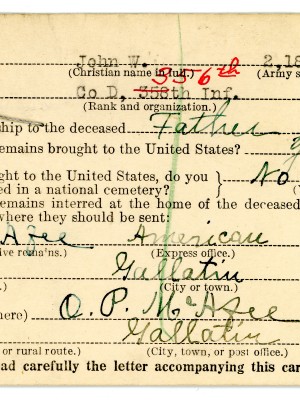 John W. 2,18
(Christian name in full.) (Army s
356th
Co D, 358th Inf.
(Rank and organization.)
ship to the deceased Father
emains brought to the United States?
ght to the United States, do you
ed in a national cemetery? } No
emains interred at the home of the deceased
where they should be sent:
Afee American
ive remains.) (Express office.)
Gallatin
(City or town.)
here) O. P. McAfee
Gallatin
or rural route.) (City, town, or post office.)
ad carefully the letter accompanying this car